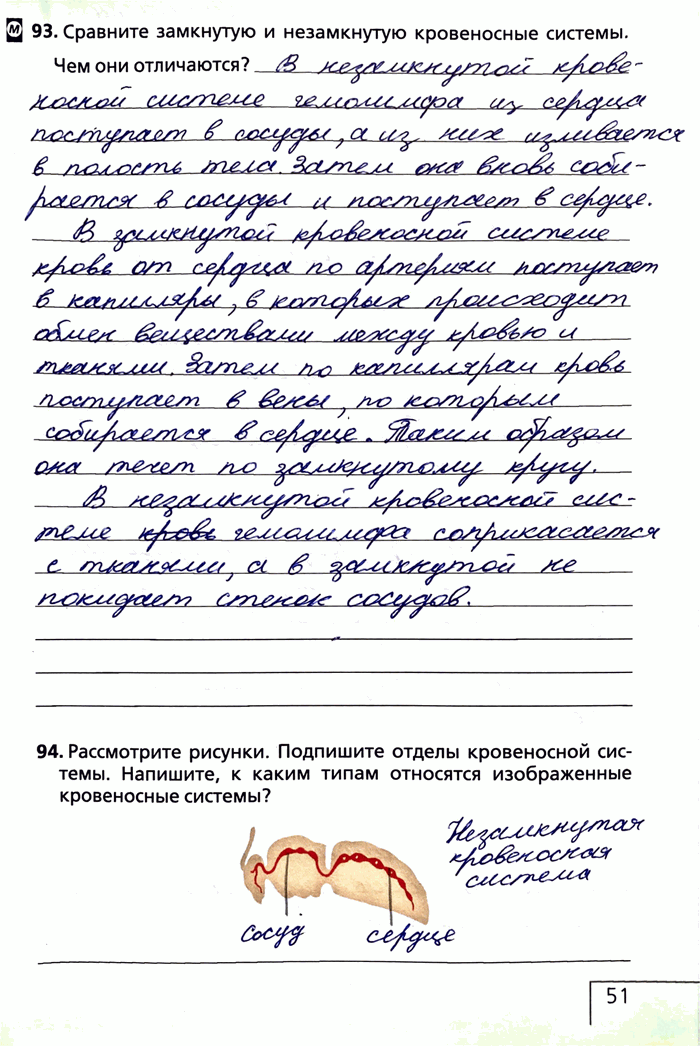 М 93. Сравните замкнутую и незамкнутую кровеносные системы.
Чем они отличаются? В незамкнутой крове-
носной системе гемолимфа из сердца
поступает в сосуды, а из них изливается
в полость тела. Затем она вновь соби-
рается в сосуды и поступает в сердце.
В замкнутой кровеносной системе
кровь от сердца по артериям поступает
в капилляры, в которых происходит
обмен веществами между кровью и
тканями. Затем по капиллярам кровь
поступает в вены, по которым
собирается в сердце. Таким образом
она течет по замкнутому кругу.
В незамкнутой кровеносной сис-
теме кровь гемолимфа соприкасается
с тканями, а в замкнутой не
покидает стенок сосудов.
94. Рассмотрите рисунки. Подпишите отделы кровеносной сис-
темы. Напишите, к каким типам относятся изображенные
кровеносные системы?
Незамкнутая
кровеносная
система
сосуд сердце
51